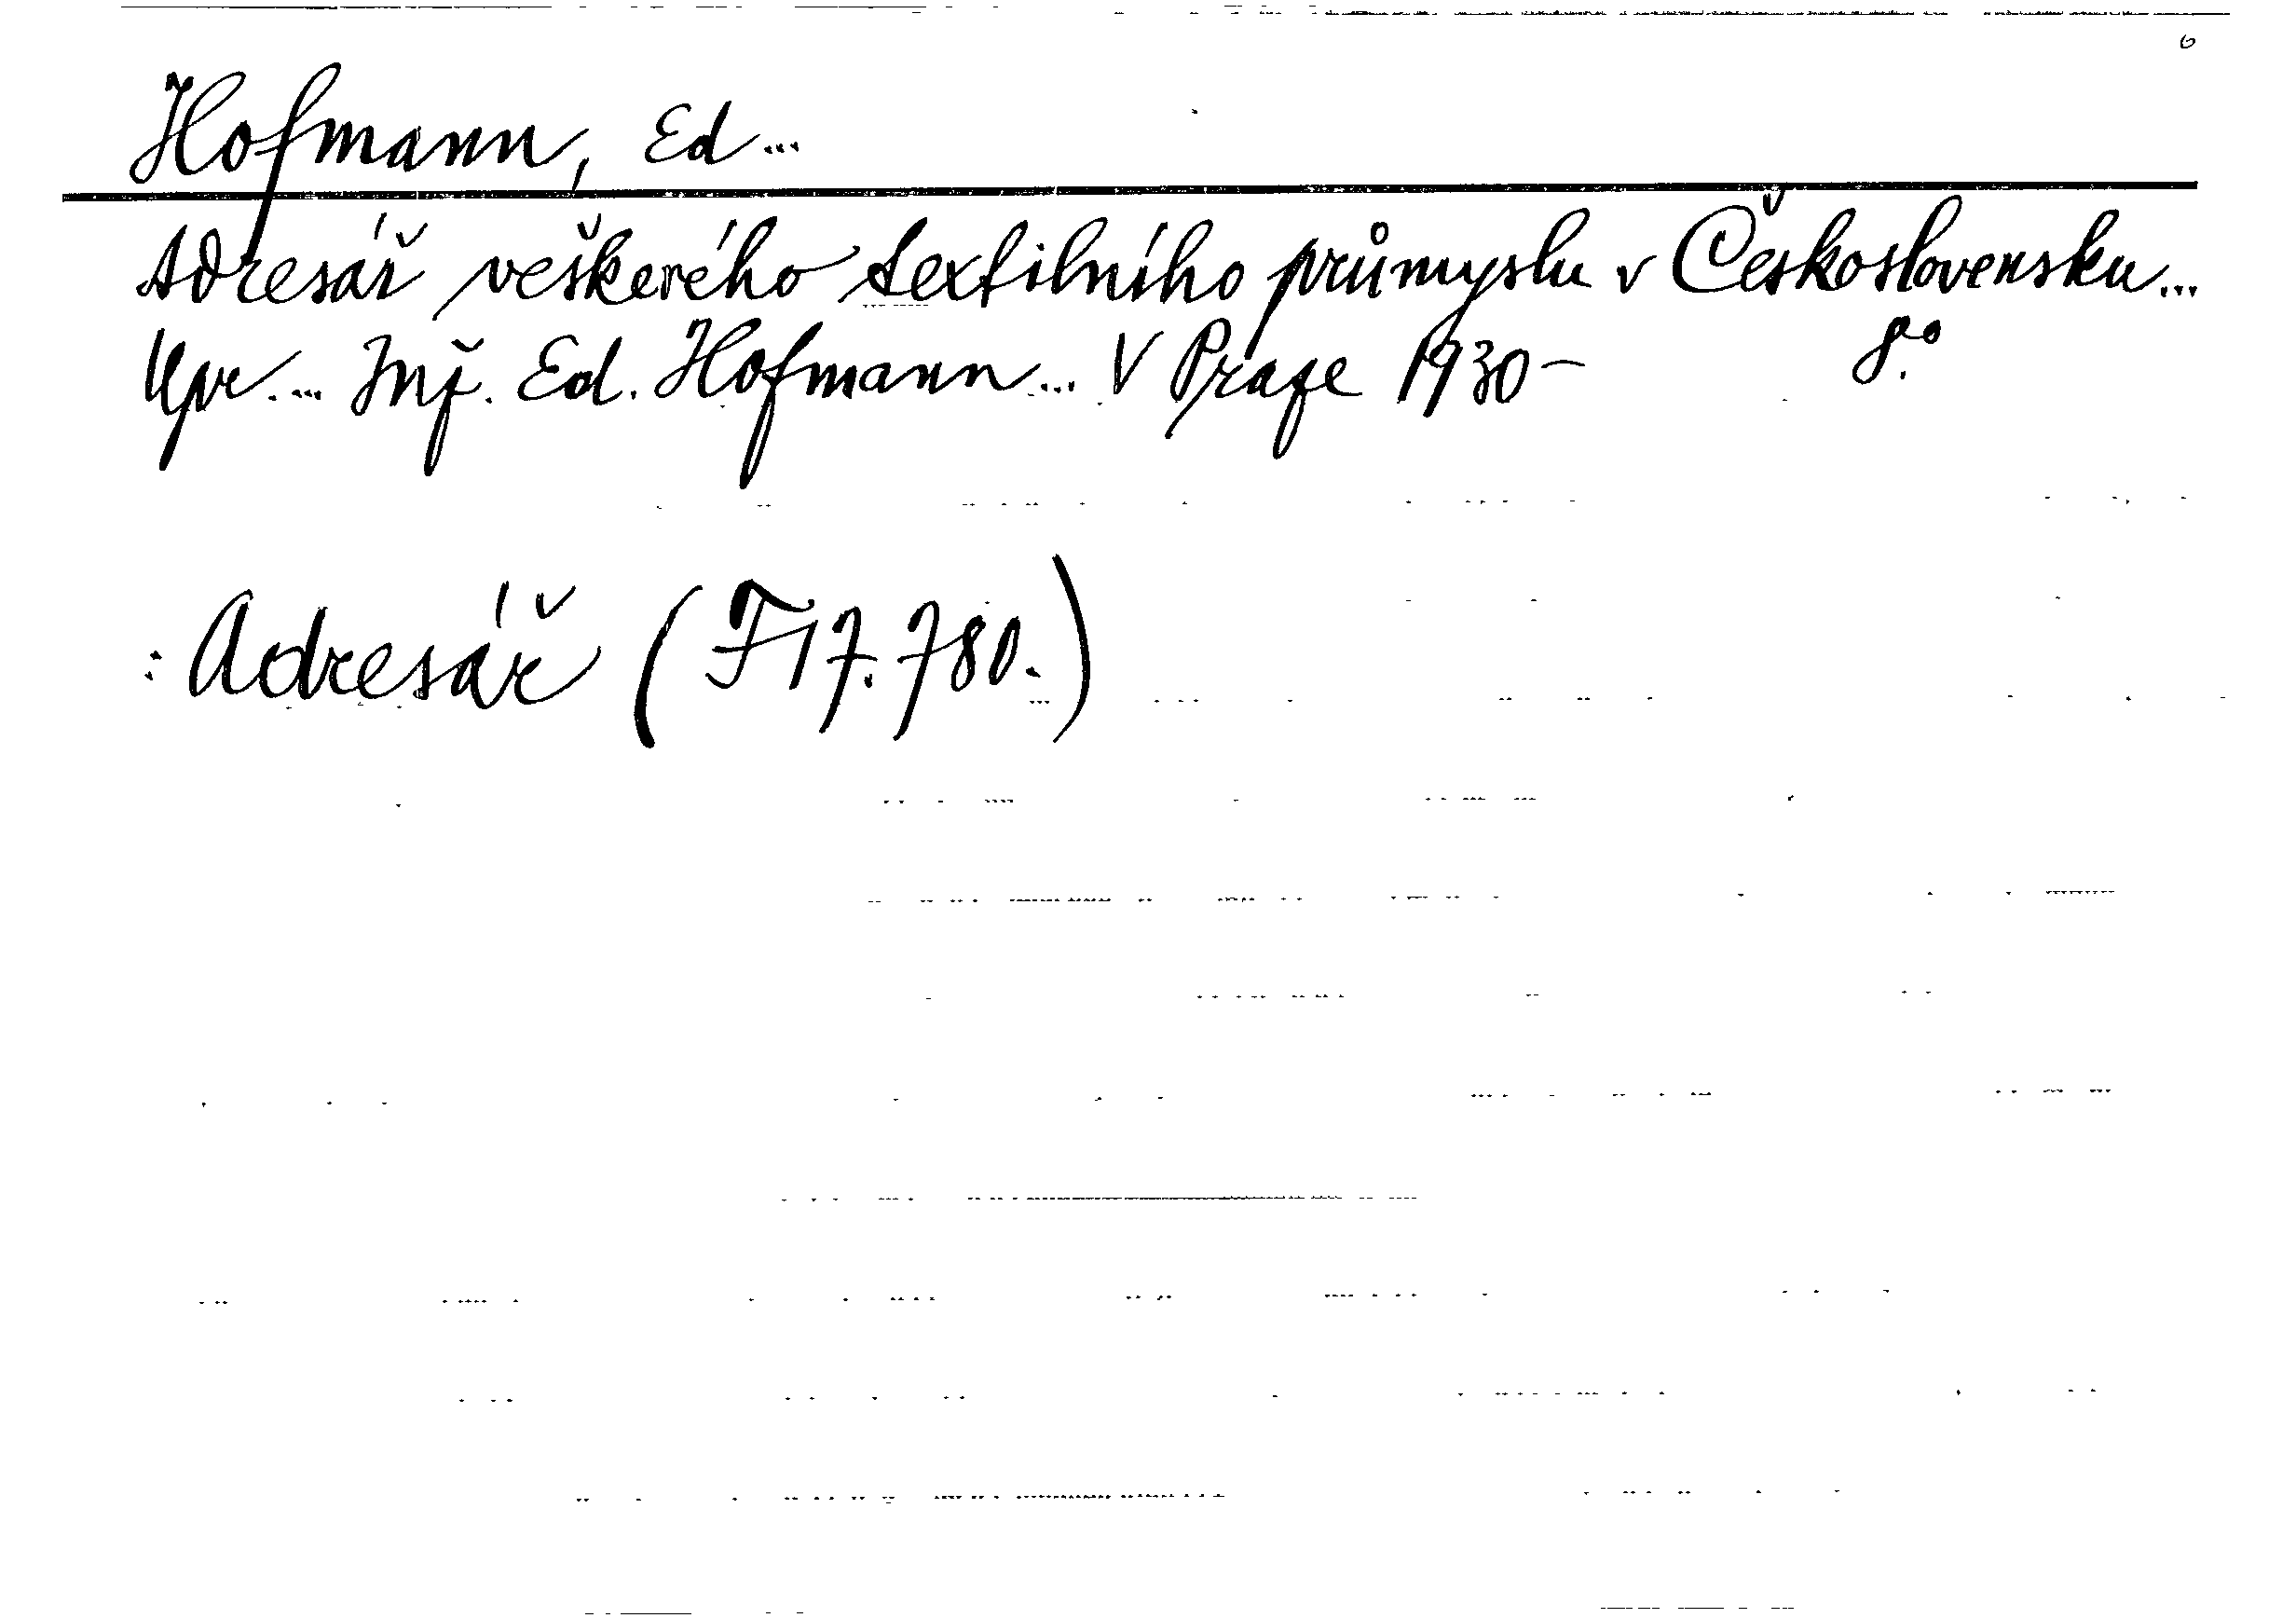 Hofmann, Ed...
Adresář veškerého textilního průmyslu v Československu...
Upr.... Inž. Ed. Hofmann... V Praze 1930- 8°.
: Adresář (F 17.780.)